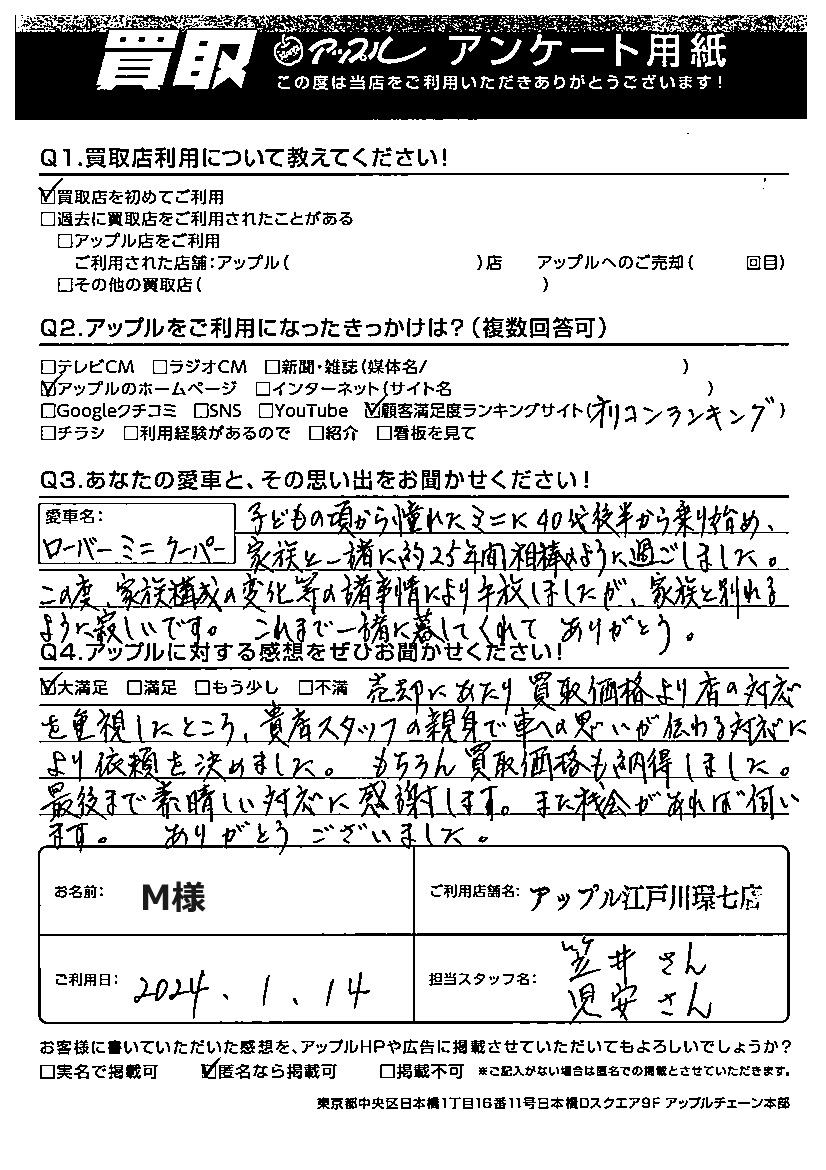 買取 アップル アンケート用紙
この度は当店をご利用いただきありがとうございます!
Q1.買取店利用について教えてください!
☑買取店を初めてご利用
□過去に買取店をご利用されたことがある
□アップル店をご利用
ご利用された店舗:アップル( )店 アップルへのご売却( 回目)
□その他の買取店( )
Q2.アップルをご利用になったきっかけは?(複数回答可)
□テレビCM □ラジオCM □新聞・雑誌(媒体名/ )
☑アップルのホームページ □インターネット(サイト名 )
□Googleクチコミ □SNS □YouTube ☑顧客満足度ランキングサイト(オリコンランキング)
□チラシ □利用経験があるので □紹介 □看板を見て
Q3.あなたの愛車と、その思い出をお聞かせください!
愛車名: 子どもの頃から憧れたミニに40代後半から乗り始め、
ローバーミニクーパー 家族と一緒に約25年間相棒のように過ごしました。
この度、家族構成の変化等の諸事情により手放しましたが、家族と別れる
ように寂しいです。 これまで一緒に暮してくれて ありがとう。
Q4.アップルに対する感想をぜひお聞かせください!
☑大満足 □満足 □もう少し □不満 売却にあたり買取価格より店の対応
を重視したところ、貴店スタッフの親身で車への思いが伝わる対応に
より依頼を決めました。 もちろん買取価格も納得しました。
最後まで素晴しい対応に感謝します。また機会があれば伺い
ます。 ありがとうございました。
お名前: M様 ご利用店舗名: アップル江戸川環七店
ご利用日: 2024.1.14 担当スタッフ名: 笠井さん
児安さん
お客様に書いていただいた感想を、アップルHPや広告に掲載させていただいてもよろしいでしょうか?
□実名で掲載可 ☑匿名なら掲載可 □掲載不可 ※ご記入がない場合は匿名での掲載とさせていただきます。
東京都中央区日本橋1丁目16番11号日本橋Dスクエア9F アップルチェーン本部